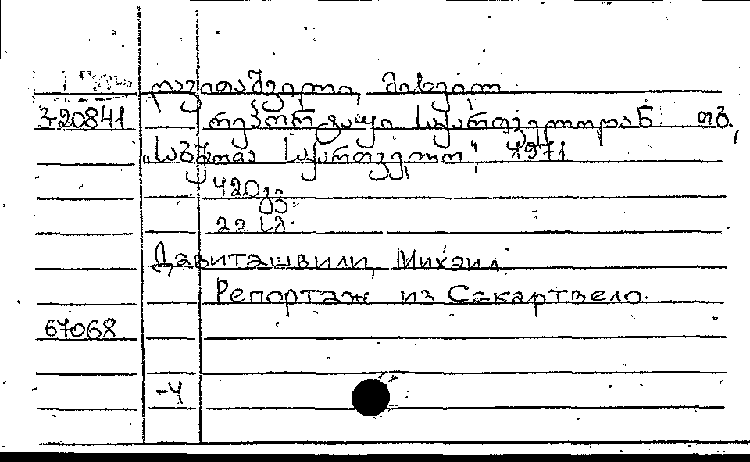 დავითაშვილი, მიხეილ
3-20841 რეპორტაჟი საქართველოდან თბ.,
„საბჭოთა საქართველო", 1971
420 გვ.
Давиташвили, Михаил
Репортаж из Сакартвело.
67068
-4